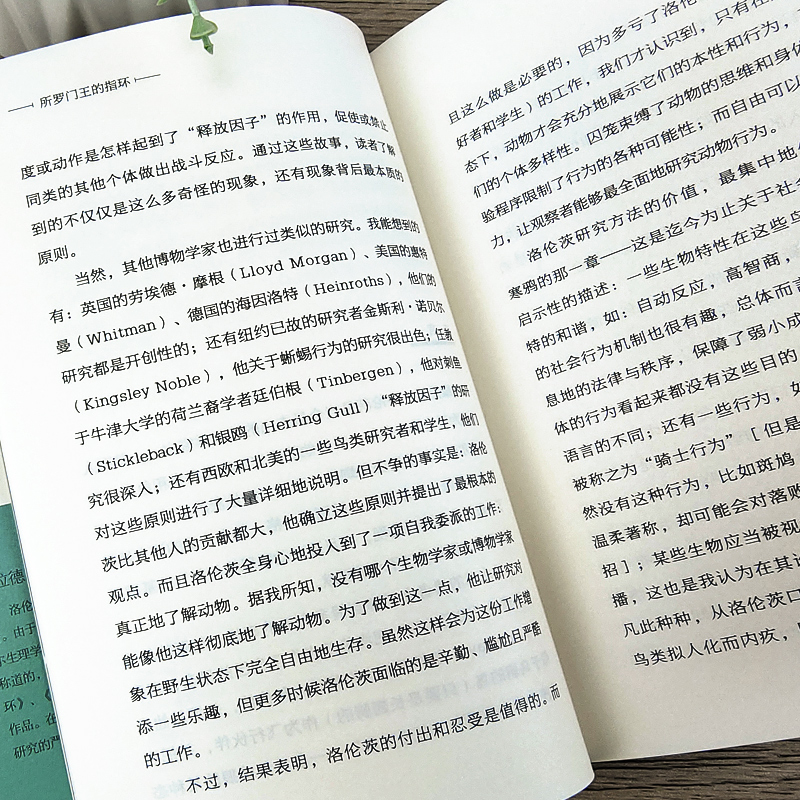 所罗门王的指环
度或动作是怎样起到了“释放因子”的作用，促使或禁止
同类的其他个体做出战斗反应。通过这些故事，读者了解
到的不仅仅是这么多奇怪的现象，还有现象背后最本质的
原则。
当然，其他博物学家也进行过类似的研究。我能想到的
有：英国的劳埃德·摩根（Lloyd Morgan）、美国的惠特
曼（Whitman）、德国的海因洛特（Heinroths），他们的
研究都是开创性的；还有纽约已故的研究者金斯利·诺贝尔
（Kingsley Noble），他关于蜥蜴行为的研究很出色；任教
于牛津大学的荷兰裔学者廷伯根（Tinbergen），他对刺鱼
（Stickleback）和银鸥（Herring Gull）“释放因子”的研
究很深入；还有西欧和北美的一些鸟类研究者和学生，他们
对这些原则进行了大量详细地说明。但不争的事实是：洛伦
茨比其他人的贡献都大，他确立这些原则并提出了最根本的
观点。而且洛伦茨全身心地投入到了一项自我委派的工作：
真正地了解动物。据我所知，没有哪个生物学家或博物学家
能像他这样彻底地了解动物。为了做到这一点，他让研究对
象在野生状态下完全自由地生存。虽然这样会为这份工作增
添一些乐趣，但更多时候洛伦茨面临的是辛勤、尴尬且严酷
的工作。
不过，结果表明，洛伦茨的付出和忍受是值得的。而
且这么做是必要的，因为多亏了洛伦
好者和学生）的工作，我们才认识到，只有在
态下，动物才会充分地展示它们的本性和行为，
们的个体多样性。囚笼束缚了动物的思维和身体
验程序限制了行为的各种可能性；而自由可以
力，让观察者能够最全面地研究动物行为。
洛伦茨研究方法的价值，最集中地
寒鸦的那一章——这是迄今为止关于社
启示性的描述：一些生物特性在这些鸟
特的和谐，如：自动反应，高智商，
的社会行为机制也很有趣，总体而言
息地的法律与秩序，保障了弱小成
体的行为看起来都没有这些目的
语言的不同；还有一些行为，如
被称之为“骑士行为”［但是
然没有这种行为，比如斑鸠
温柔著称，却可能会对落败
招］；某些生物应当被视
播，这也是我认为在其
凡此种种，从洛伦茨口
鸟类拟人化而内疚，
拉德
洛伦
。由于
尔生理学
称道的，
环》、《
作品。在
研究的严